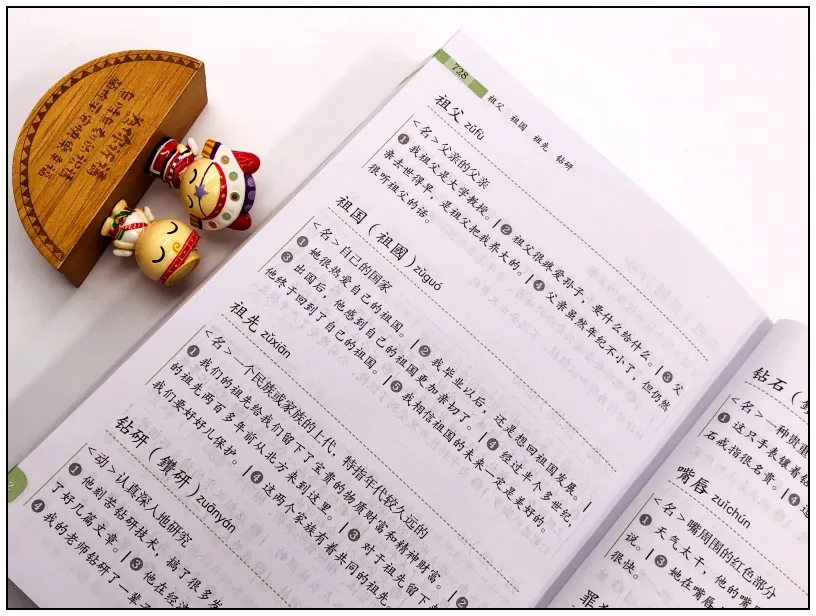 728
祖父 祖国 祖先 钻研
祖父 zǔfù
〈名〉父亲的父亲
❶ 我祖父是大学教授。 | ❷ 祖父很疼爱孙子，要什么给什么。 | ❸ 父
亲去世得早，是祖父把我养大的。 | ❹ 父亲虽然年纪不小了，但仍然
很听祖父的话。
祖国（祖國）zǔguó
〈名〉自己的国家
❶ 她很热爱自己的祖国。 | ❷ 我毕业以后，还是想回祖国发展。 |
❸ 出国后，他感到自己的祖国更加亲切了。 | ❹ 经过半个多世纪，
他终于回到了自己的祖国。 | ❺ 我相信祖国的未来一定是美好的。
祖先 zǔxiān
〈名〉一个民族或家族的上代，特指年代较久远的
❶ 我们的祖先给我们留下了宝贵的物质财富和精神财富。 | ❷
的祖先两百多年前从北方来到这里。 | ❸ 对于祖先留下
我们要好好儿保护。 | ❹ 这两个家族有着共同的祖先
钻研（鑽研）zuānyán
〈动〉认真深入地研究
❶ 他刻苦钻研技术，搞了很多
了好几篇文章。 | ❸ 他在经
❹ 我的老师钻研了一辈
钻石（
〈名〉一种贵重
❶ 这只手表镶着钻
石戒指很名贵。 | ❹ 这
嘴唇 zuǐchún
〈名〉嘴周围的红色部分
❶ 天气太干，他的嘴
说。 | ❸ 她在嘴唇
很快。